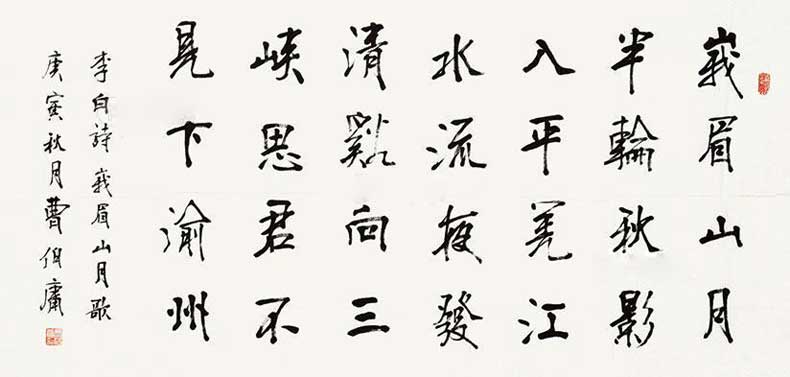 峩眉山月
半輪秋影
入平羌江
水流夜發
清谿向三
峽思君不
見下渝州
李白詩峩眉山月歌
庚寅秋月曹伯庸